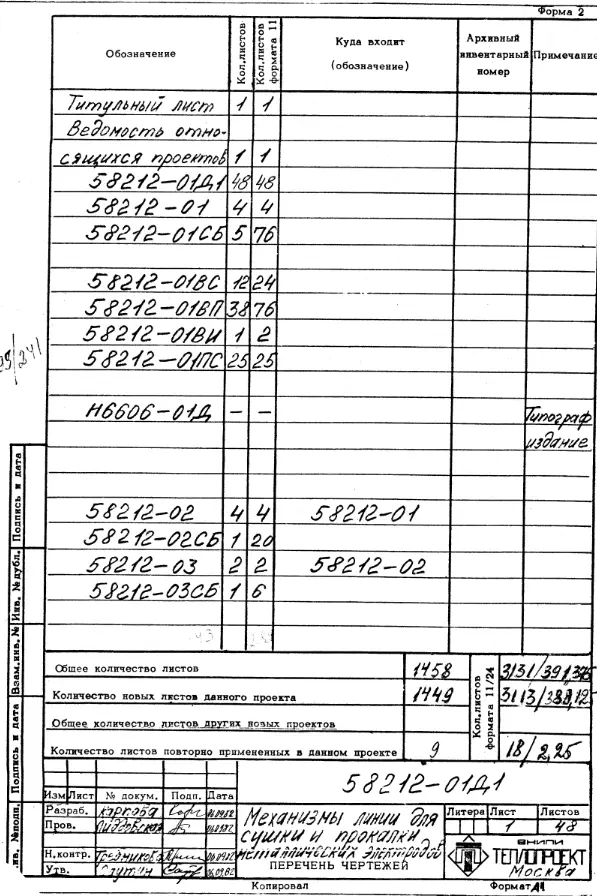 Форма 2
Обозначение
Кол.листов
Кол.листов формата 11
Куда входит
(обозначение)
Архивный
инвентарный
номер
Примечание
Титульный лист 1 1
Ведомость отно-
сящихся проектов 1 1
58212-01Д1 48 48
58212-01 4 4
58212-01СБ 5 76
58212-01ВС 12 24
58212-01ВП 38 76
58212-01ВИ 1 2
58212-01ПС 25 25
Н6606-01Д — — Типограф
издание
58212-02 4 4 58212-01
58212-02СБ 1 20
58212-03 2 2 58212-02
58212-03СБ 1 6
Общее количество листов 1458
Количество новых листов данного проекта 1449
Общее количество листов других новых проектов
Количество листов повторно примененных в данном проекте 9 18/2,25
Кол.листов
формата 11/24
Подпись и дата
Инв. № дубл.
Взам.инв. №
Подпись и дата
Инв. № подл.
58212-01Д1
Изм Лист № докум. Подп. Дата
Разраб.
Пров.
Н.контр.
Утв.
Механизмы линии для
сушки и прокалки
металлических электродов
ПЕРЕЧЕНЬ ЧЕРТЕЖЕЙ
Литера Лист Листов
1 48
ВНИПИ
ТЕПЛОПРОЕКТ
Москва
Копировал
Формат А4